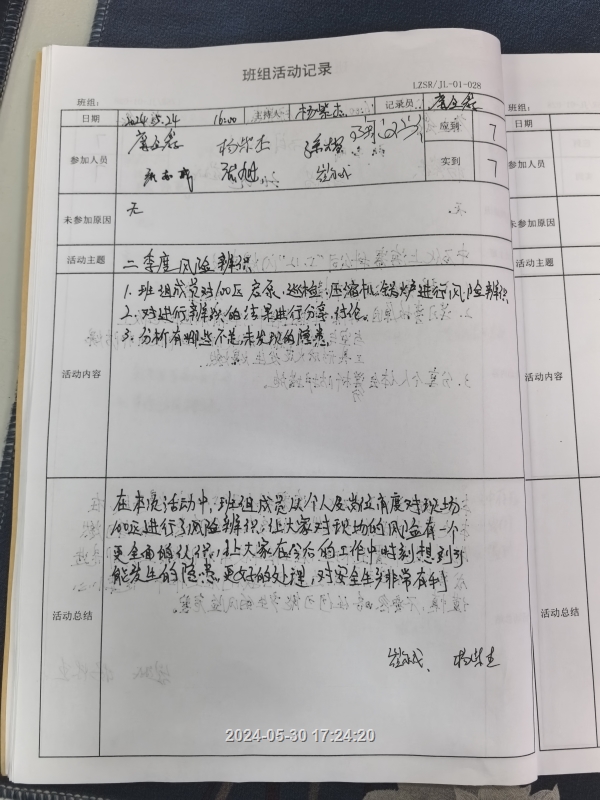 班组活动记录
LZSR/JL-01-028
班组：
日期 2024.05.24 16:00 主持人 杨 杰 记录员
参加人员 应到 7
实到 7
未参加原因 无
活动主题 二季度风险辨识
活动内容
1. 班组成员对100区 巡检、压缩机、锅炉进行风险辨识
2. 对进行辨识的结果进行分享、讨论。
3. 分析有哪些不足，未发现的隐患。
活动总结
在本次活动中，班组成员以个人及岗位角度对现场
100区进行了风险辨识，让大家对现场的风险有一个
更全面的认识，让大家在今后的工作中时刻想到可
能发生的隐患。更好的处理，对安全生产非常有利
班组：
日期
参加人员
未参加原因
活动主题
活动内容
活动总结
2024-05-30 17:24:20